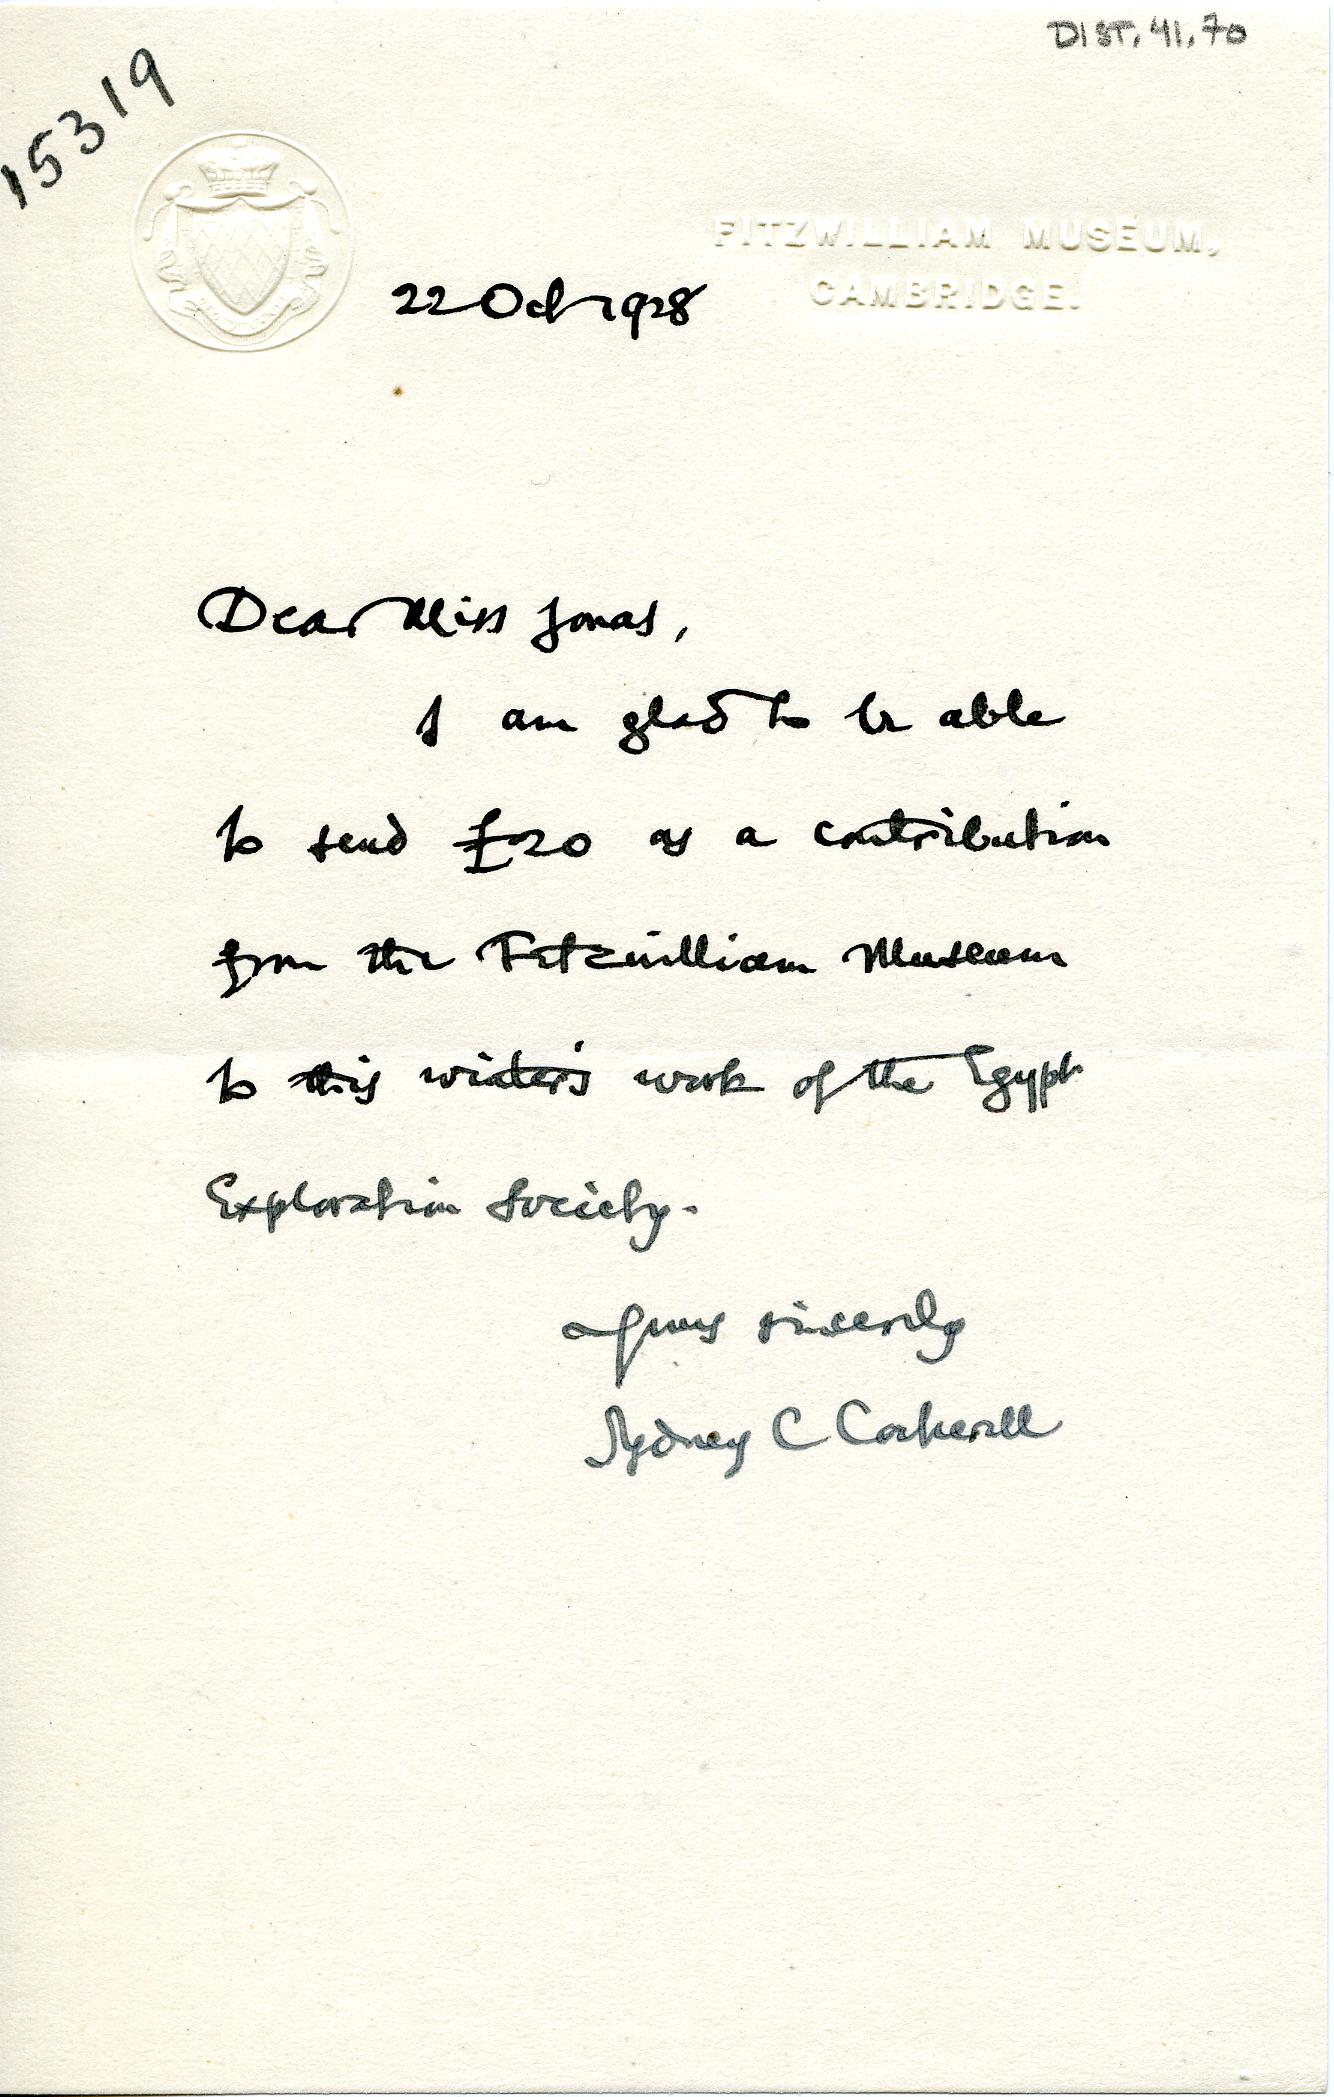 DIST. 41.70
15319
FITZWILLIAM MUSEUM,
CAMBRIDGE.
22 Oct 1928
Dear Miss Jonas,
I am glad to be able
to send £20 as a contribution
from the Fitzwilliam Museum
to this winter's work of the Egypt
Exploration Society.
Yours sincerely
Sydney C Cockerell